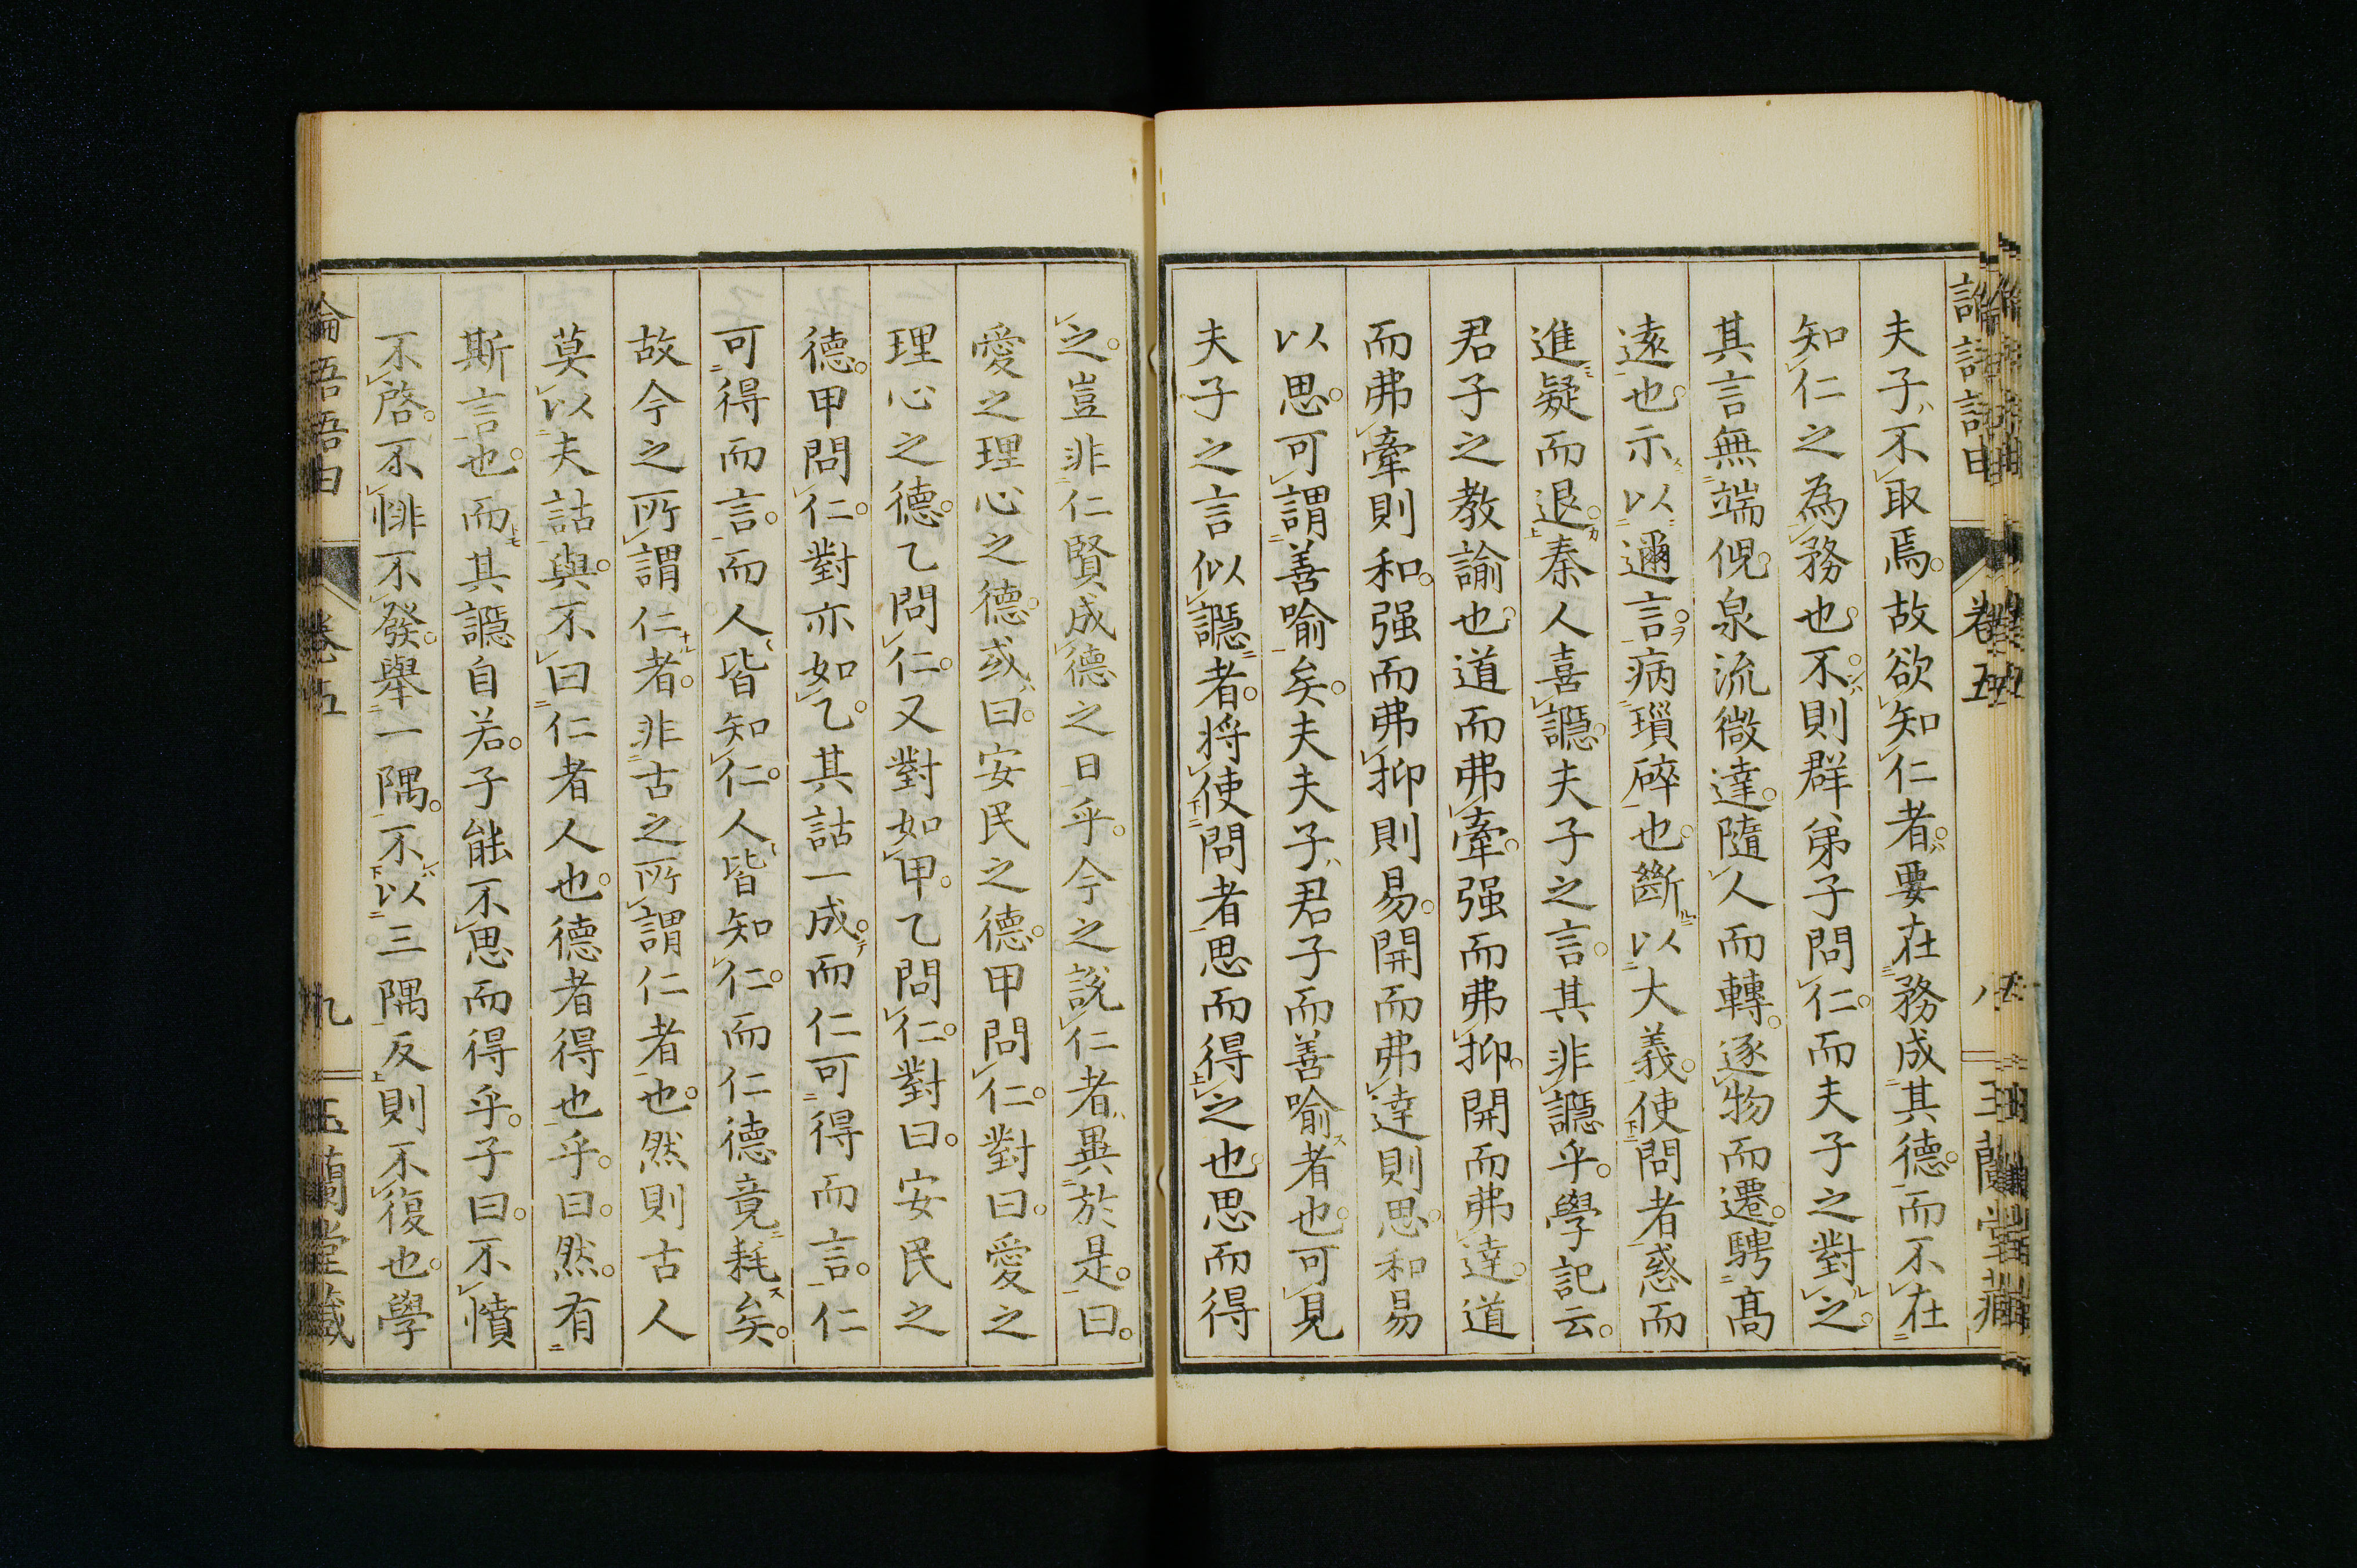 夫子不取焉。故欲知仁者。要在務成其德。而不在
知仁之為務也。不則群弟子問仁。而夫子之對之。
其言無端倪。泉流微達。隨人而轉。逐物而遷。騁高
遠也。示以邇言。病瑣碎也。斷以大義。使問者惑而
進疑而退。秦人喜讔。夫子之言。其非讔乎。學記云。
君子之教諭也。道而弗牽。强而弗抑。開而弗達。道
而弗牽則和。强而弗抑則易。開而弗達則思。和易
以思。可謂善喻矣。夫夫子君子而善喻者也。可見
夫子之言似讔者。將使問者思而得之也。思而得
之。豈非仁賢成德之日乎。今之說仁者異於是。曰。
愛之理心之德。或曰。安民之德。甲問仁。對曰。愛之
理心之德。乙問仁。又對如甲。乙問仁。對曰。安民之
德。甲問仁。對亦如乙。其詁一成。而仁可得而言。仁
可得而言。而人皆知仁。人皆知仁。而仁德竟耗矣。
故今之所謂仁者。非古之所謂仁者也。然則古人
莫以夫詁與。不曰仁者人也。德者得也乎。曰。然。有
斯言也。而其讔自若。子能不思而得乎。子曰。不憤
不啓。不悱不發。舉一隅。不以三隅反則不復也。學
卷五
九